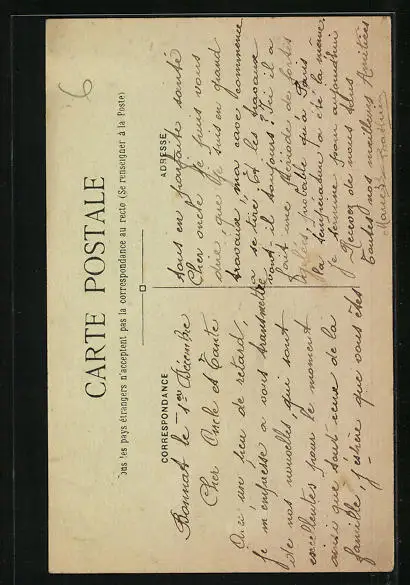 6
CARTE POSTALE
ous les pays étrangers n'acceptent pas la correspondance au recto (Se renseigner à la Poste)
CORRESPONDANCE
ADRESSE
Bonnat le 1er Décembre
Cher Oncle et Tante
un peu de retard,
je m'empresse a vous transmettre
de nos nouvelles, qui sont
excellentes pour le moment
ainsi que tout ceux de la
famille, j'éspère que vous êtes
tous en parfaite santé
Cher oncle je puis vous
dire que je suis en grand
travaux, ma cave commence
a se tiré, Et les travaux
vont-il toujours? Ici il a
fait une période de fortes
probable qu'à Paris
la température a été la même.
Je termine pour aujourd'hui
Recever de nous tous
toutes nos meilleurs Amitiées